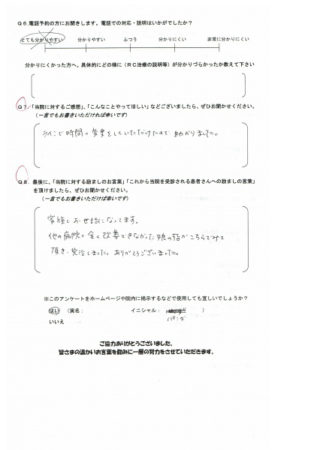 Q6.電話予約の方にお聞きします。電話での対応・説明はいかがでしたか?
とても分かりやすい 分かりやすい ふつう 分かりにくい 非常に分かりにくい
分かりにくかった方へ、具体的にどの様に(RC治療の説明等)が分かりづらかったか教えて下さい
Q7.「当院に対するご感想」、「こんなことやってほしい」などございましたら、ぜひお聞かせください。
(一言でもお書きいただければ幸いです)
時間の変更をしていただけたので 助かりました。
Q8.最後に、「当院に対する励ましのお言葉」「これから当院を受診される患者さんへの励ましの言葉」
を頂けましたら、ぜひお聞かせください。
(一言でもお書きいただければ幸いです)
家族でお世話になってます。
他の病院で全く改善できなかった娘の指がこちらでみて
頂き、完治しました。ありがとうございました。
※このアンケートをホームページや院内に掲示するなどで使用しても宜しいでしょうか?
はい (実名: イニシャル: )
いいえ
ご協力ありがとうございました。
皆さまの温かいお言葉を励みに一層の努力をさせていただきます。